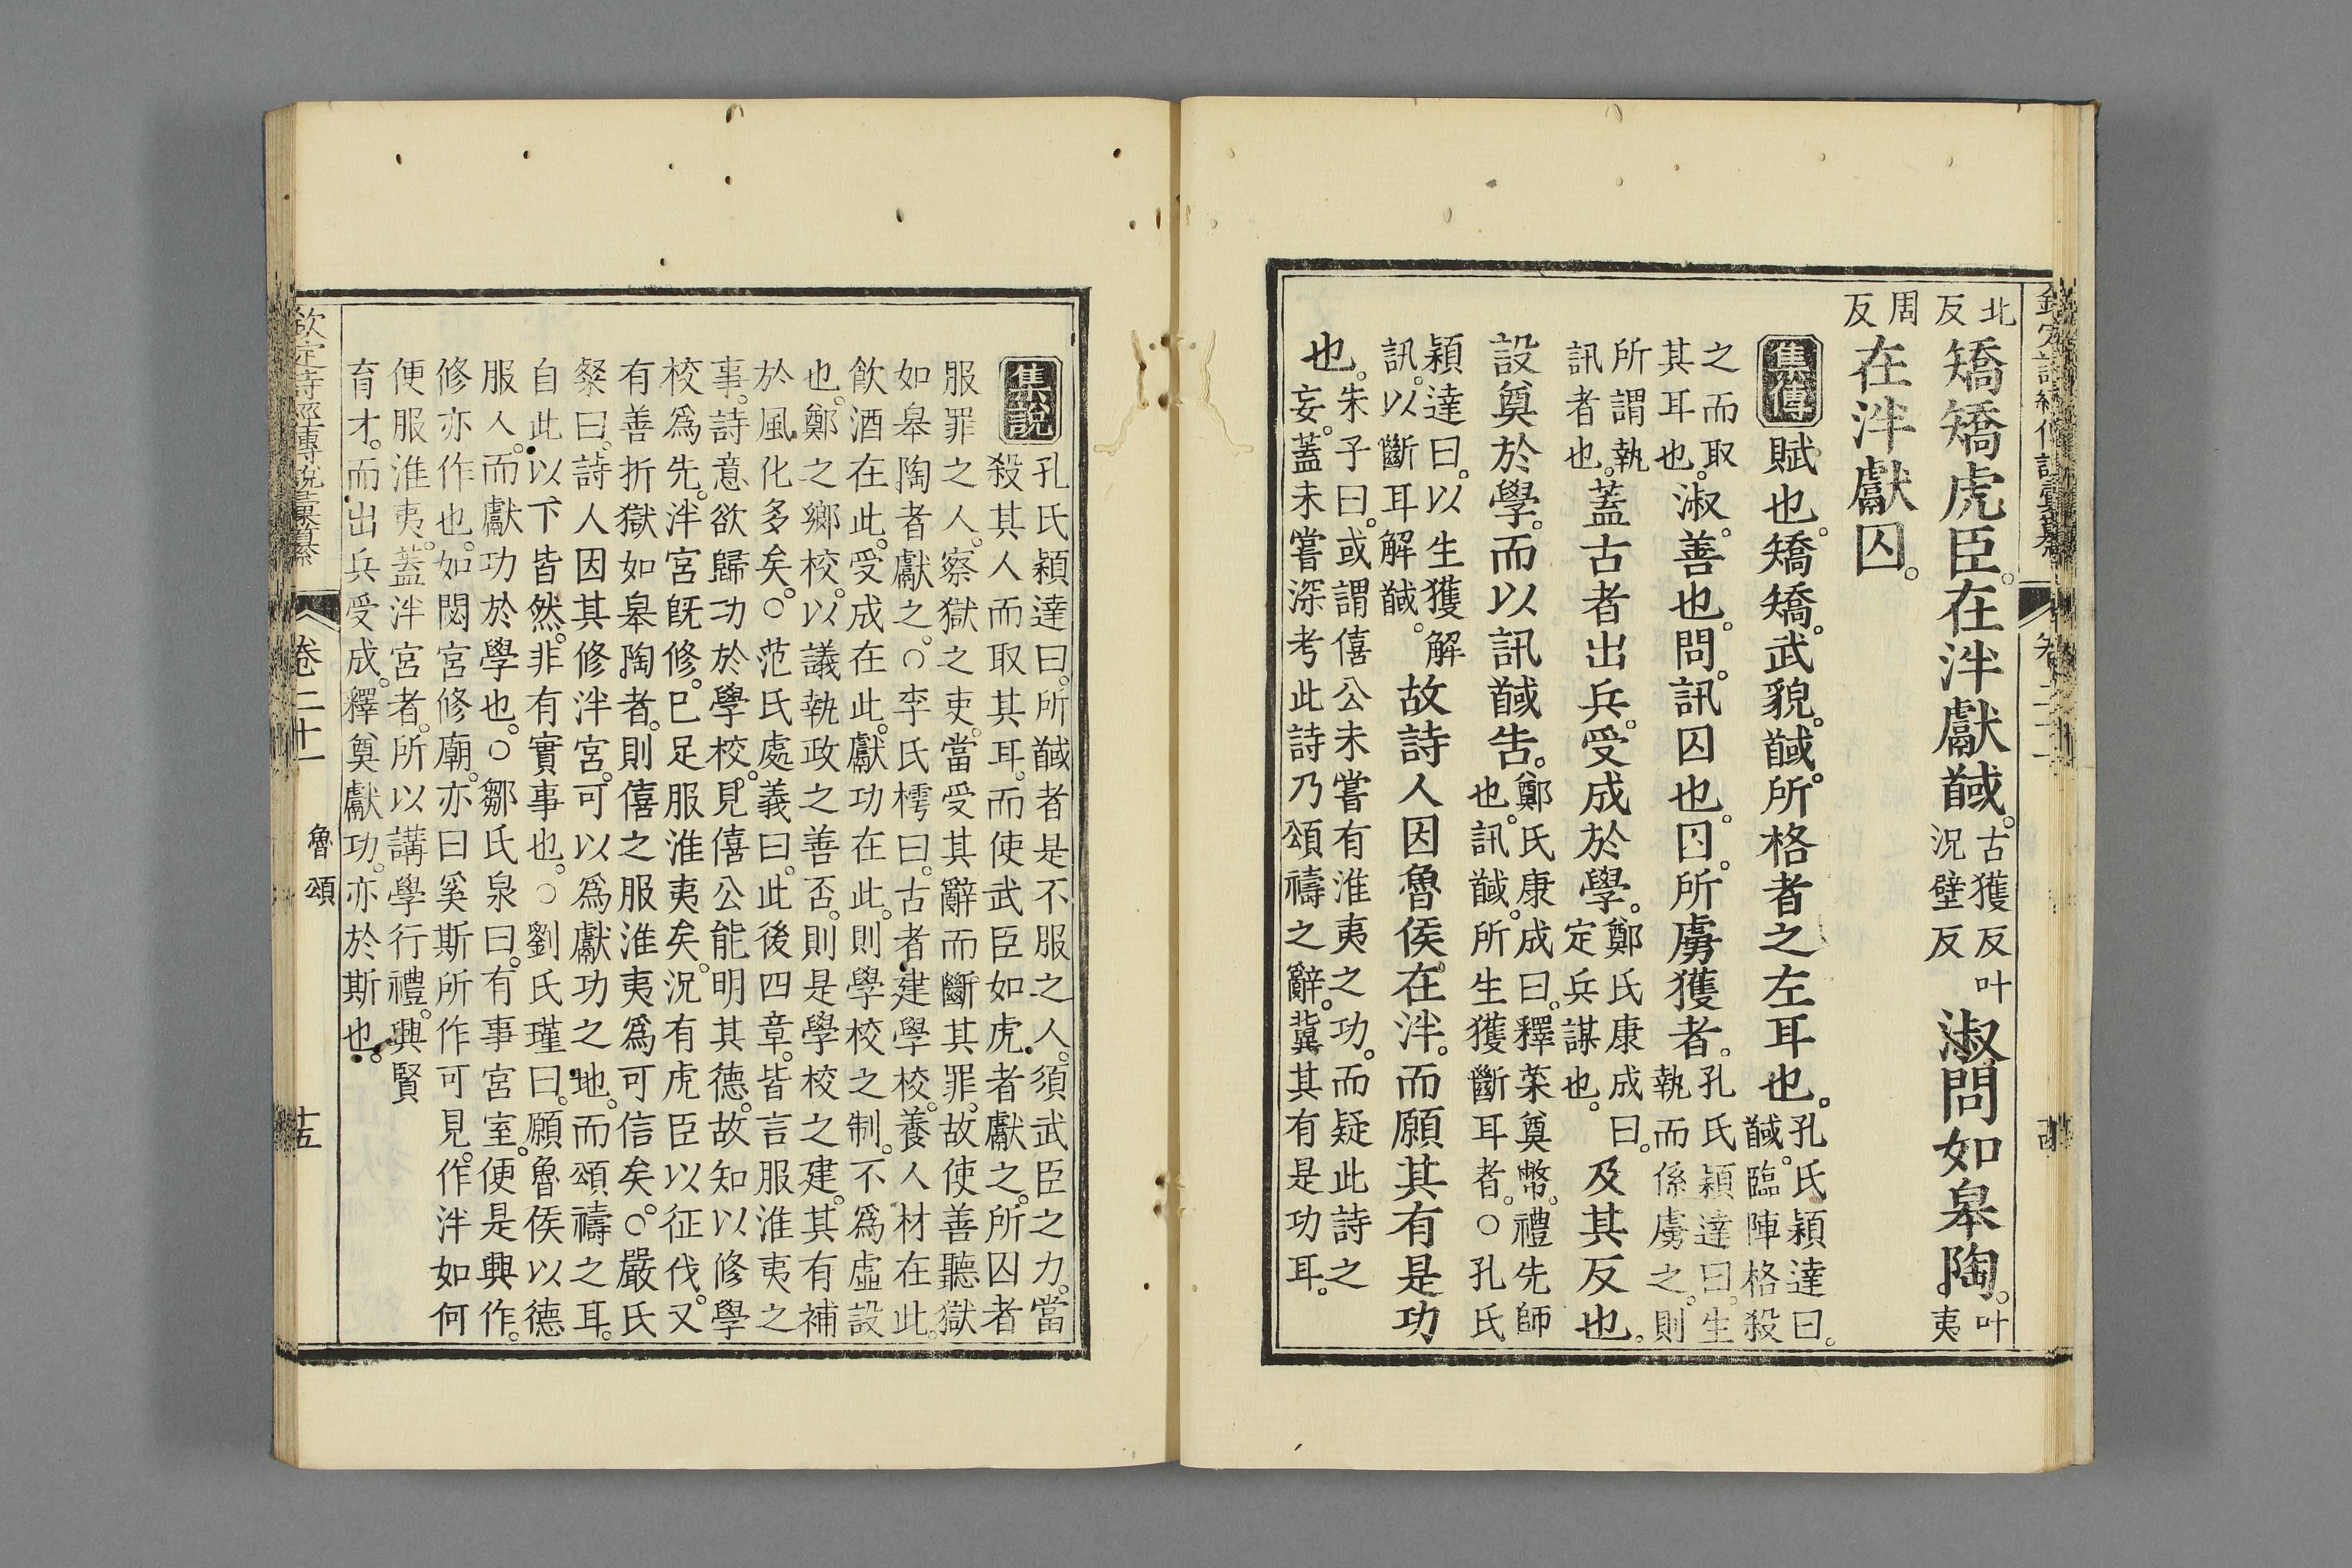 北反矯矯虎臣。在泮獻馘。古獲反叶況壁反淑問如皋陶。叶夷
周反在泮獻囚。
集傳賦也。矯矯。武貌。馘。所格者之左耳也。孔氏穎達曰。馘。臨陣格殺
之而取其耳也。淑。善也。問。訊囚也。囚。所虜獲者。孔氏穎達曰。生執而係虜之。則
所謂執訊者也。蓋古者出兵。受成於學。鄭氏康成曰。定兵謀也。及其反也。
設奠於學。而以訊馘告。鄭氏康成曰。釋菜奠幣。禮先師也。訊馘。所生獲斷耳者。○孔氏
穎達曰。以生獲解訊。以斷耳解馘。故詩人因魯侯在泮。而願其有是功
也。朱子曰。或謂僖公未嘗有淮夷之功。而疑此詩之妄。蓋未嘗深考此詩乃頌禱之辭。冀其有是功耳。
集說孔氏穎達曰。所馘者是不服之人。須武臣之力。當
殺其人而取其耳。而使武臣如虎者獻之。所囚者
服罪之人。察獄之吏。當受其辭而斷其罪。故使善聽獄
如皋陶者獻之。○李氏樗曰。古者建學校。養人材在此。
飲酒在此。受成在此。獻功在此。則學校之制。不爲虛設
也。鄭之鄉校。以議執政之善否。則是學校之建。其有補
於風化多矣。○范氏處義曰。此後四章。皆言服淮夷之
事。詩意欲歸功於學校。見僖公能明其德。故知以修學
校爲先。泮宮旣修。已足服淮夷矣。況有虎臣以征伐。又
有善折獄如皋陶者。則僖之服淮夷爲可信矣。○嚴氏
粲曰。詩人因其修泮宮。可以爲獻功之地。而頌禱之耳。
自此以下皆然。非有實事也。○劉氏瑾曰。願魯侯以德
服人。而獻功於學也。○鄒氏泉曰。有事宮室。便是興作。
修亦作也。如閟宮修廟。亦曰奚斯所作可見。作泮如何
便服淮夷。蓋泮宮者。所以講學行禮。興賢
育才。而出兵受成。釋奠獻功。亦於斯也。
欽定詩經傳說彙纂 卷二十一 魯頌 十五